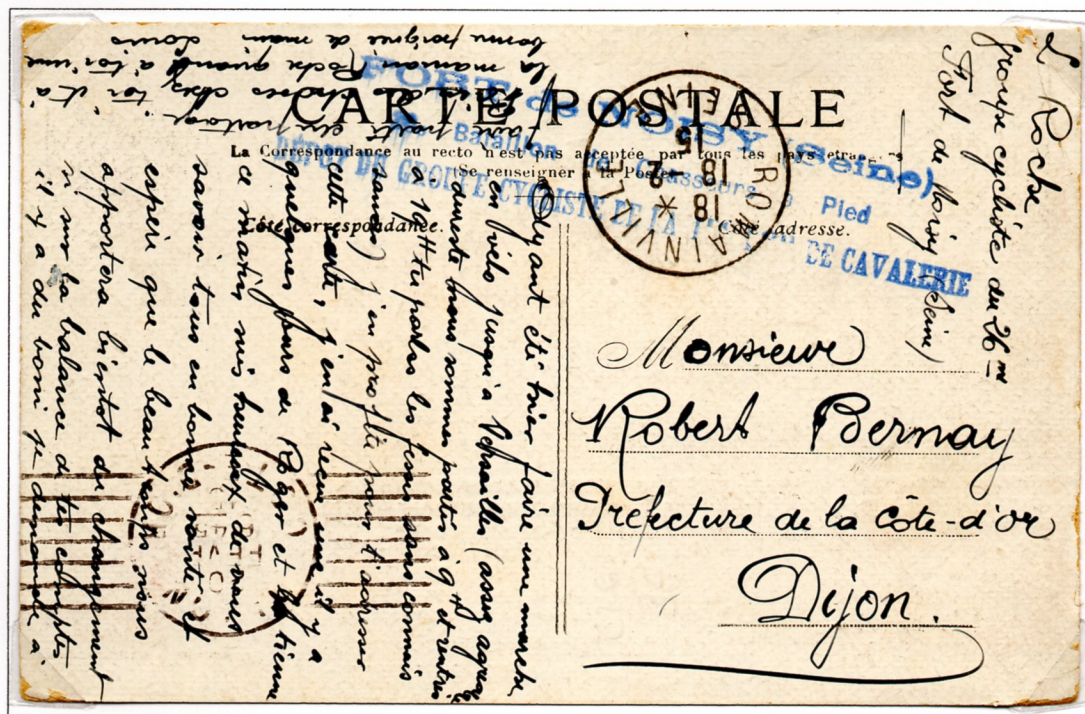 CARTE POSTALE
La Correspondance au recto n'est pas acceptée par tous les pays étrangers
(Se renseigner à la Poste)
Côté correspondance.
Côté adresse.
FORT de NOISY (Seine)
Bataillon de Chasseurs à Pied
DÉPÔT DU GROUPE CYCLISTE DE LA DE CAVALERIE
ROMAINVILLE
SEINE
18 * 18 -2 15
L Roche
groupe cycliste du 26me
Fort de Noisy (Seine)
Monsieur
Robert Bernay
Préfecture de la Côte-d'or
Dijon.
Ayant été hier faire une marche
en vélo jusqu'à Versailles (assez agréable
du reste nous sommes partis à 9h et rentrés
à 19h
j'en profite pour t'adresser
cette carte, j'en ai reçu une il y a
quelques jours de Roger et la tienne
ce matin suis heureux de vous
savoir tous en bonne santé et
espère que le beau temps nous
apportera bientôt du changement
sur la balance de tes comptes
il y a du boni je demande à
en faire partager
chez toi et à
la maman Roche quand à toi une
bonne poignée de main Louis